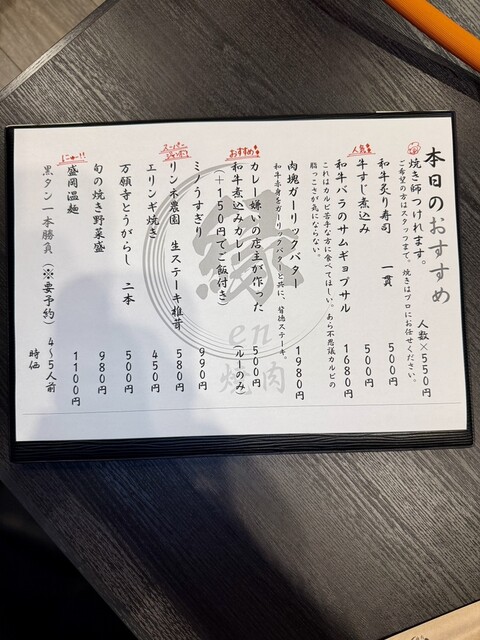 本日のおすすめ
焼き師つけれます。 人数×550円
ご希望の方はスタッフまで、焼きはプロにお任せください。
和牛炙り寿司 一貫 500円
牛すじ煮込み 500円
人気
和牛バラのサムギョプサル 1680円
これはカルビ苦手な方に食べてほしい。あら不思議カルビの
脂っこさが気にならない。
肉塊ガーリックバター 1980円
和牛赤身をガーリックバターと共に、背徳ステーキ。
おすすめ
カレー嫌いの店主が作った 500円
和牛煮込みカレー (ルーのみ)
(+150円でご飯付き)
ミノうすぎり 990円
スーパー
リンネ農園 生ステーキ椎茸 580円
エリンギ焼き 450円
万願寺とうがらし 二本 500円
旬の焼き野菜盛 980円
にゅー!!
盛岡温麺 1100円
黒タン一本勝負(※要予約) 4~5人前
時価
縁
en
焼肉